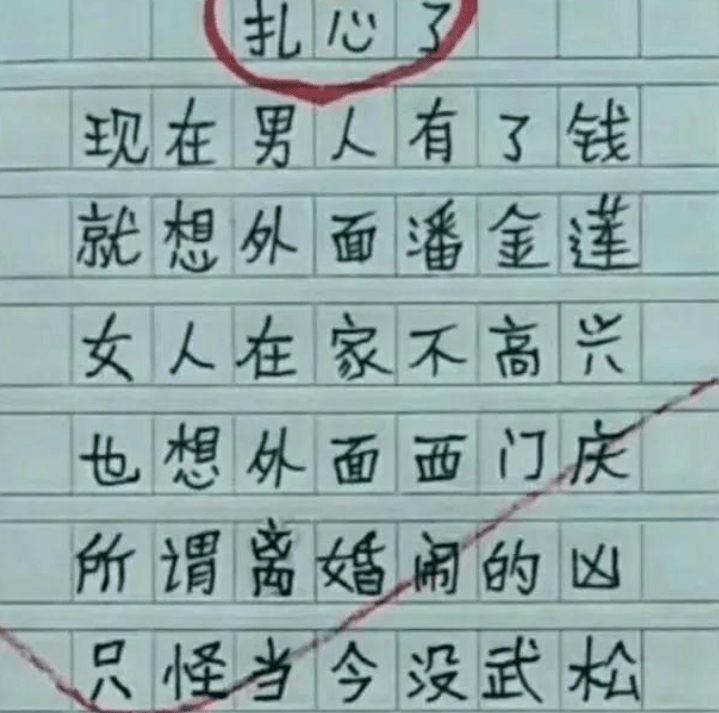 扎心了
现在男人有了钱
就想外面潘金莲
女人在家不高兴
也想外面西门庆
所谓离婚闹的凶
只怪当今没武松